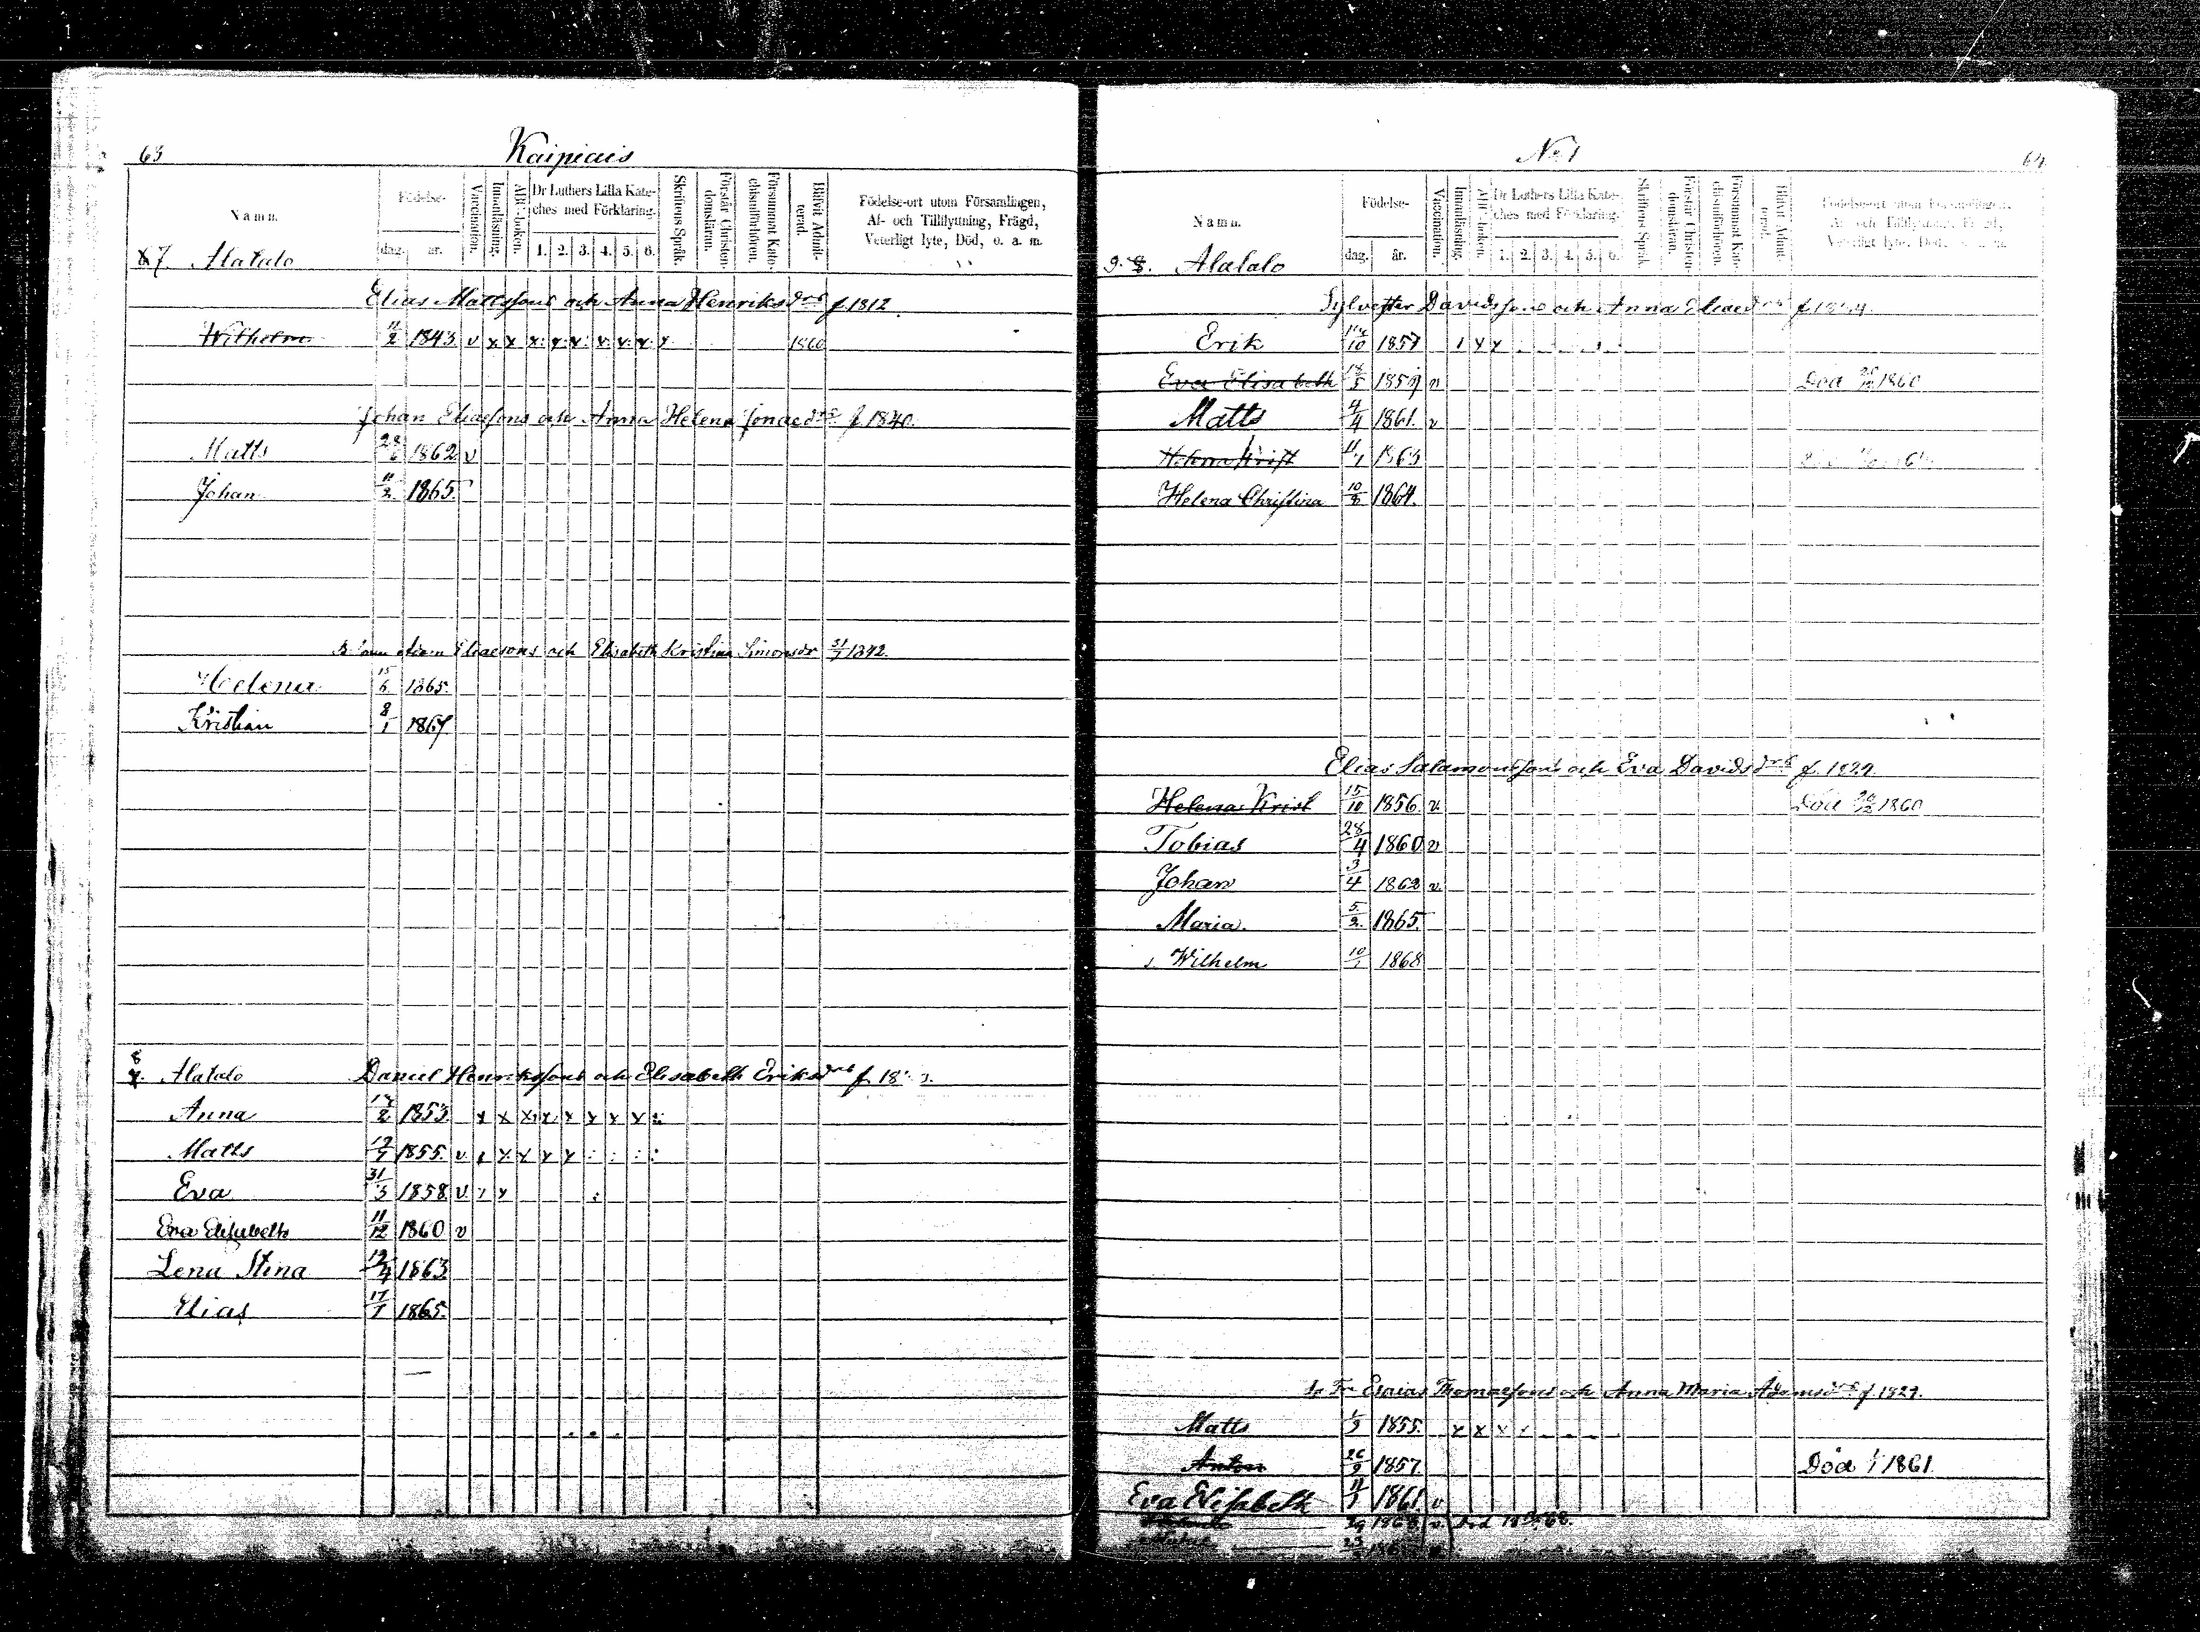 63 Kaipiais
Namn. Födelse- dag. år. Vaccination. Innanläsning. ABC-boken. Dr Luthers Lilla Kateches med Förklaring. 1. 2. 3. 4. 5. 6. Skriftens Språk. Förstår Christendomsläran. Försummat Katechismiförhören. Blifvit Admitterad. Födelse-ort utom Församlingen, Af- och Tillflyttning, Frägd, Veterligt lyte, Död, o. a. m.
7. Alatalo
Elias Mattssons och Anna Henriksdrs f. 1812.
Wilhelm 11/2 1843 v x x x x x x x x x 1860
Johan Eliassons och Anna Helena Jonaedrs f. 1840.
Matts 1862 v
Johan 11/2 1865.
Eliaesons och Elisabeth Kristina Simonsdr 31/7 1842.
Helena 15/6 1865.
Kristian 8/1 1867
8 Alatalo Daniel Henrikssons och Elisabeth Eriksdrs f.
Anna 1853 x x x x x x x x
Matts 1855. v x x x x
Eva 31/3 1858 v x
Eva Elisabeth 11/12 1860 v
Lena Stina 1863
Elias 17/1 1865.
No 1 64
Namn. Födelse- dag. år. Vaccination. Innanläsning. ABC-boken. Dr Luthers Lilla Kateches med Förklaring. 1. 2. 3. 4. 5. 6. Skriftens Språk. Förstår Christendomsläran. Försummat Katechismiförhören. Blifvit Admitterad. Födelse-ort utom Församlingen, Af- och Tillflyttning, Frägd, Veterligt lyte, Död, o. a. m.
9. 8. Alatalo
Sylvester Davidssons och Anna Eliaedrs
Erik 1857 x x
Eva Elisabeth 18/5 1859 v Död 1860
Matts 4/4 1861. v
Helena Krist 11/1 1863
Helena Christina 10/8 1864.
Elias Salamonssons och Eva Davidsdrs f. 1829.
Helena Krist 15/10 1856 v. Död 1860
Tobias 28/4 1860 v
Johan 3/4 1862 v.
Maria. 5/2 1865.
Wilhelm 10/1 1868
Esaias Thomaesons och Anna Maria Adamsdrs f 1829.
Matts 1/9 1855. x x x
Anton 26/9 1857. Död 1/1 1861.
Eva Elisabeth 1861. v